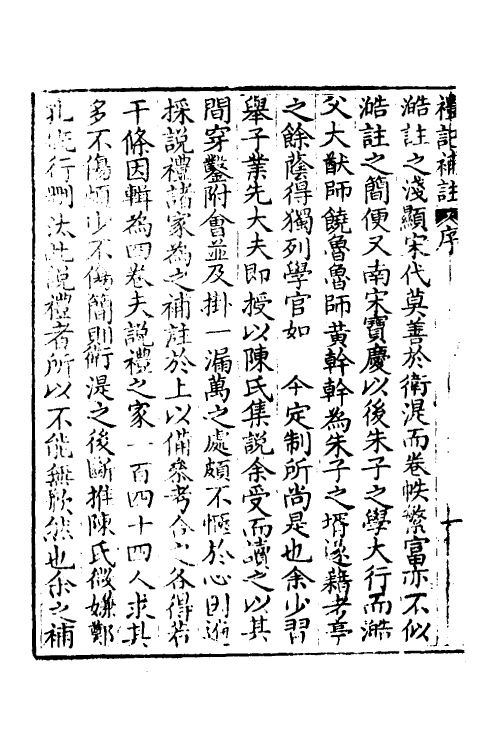 禮記補註 序
澔註之淺顯宋代莫善於衛湜而卷帙繁富亦不似
澔註之簡便又南宋寶慶以後朱子之學大行而澔
父大猷師饒魯魯師黃幹幹為朱子之壻遂藉考亭
之餘蔭得獨列學官如 今定制所尚是也余少習
舉子業先大夫即授以陳氏集說余受而讀之以其
間穿鑿附會並及掛一漏萬之處頗不愜於心則遍
採說禮諸家為之補註於上以備參考合之各得若
干條因輯為四卷夫說禮之家一百四十四人求其
多不傷煩少不傷簡則衛湜之後斷推陳氏微嫌鄭
孔 行刪汰此說禮者所以不能無歉然也余之補